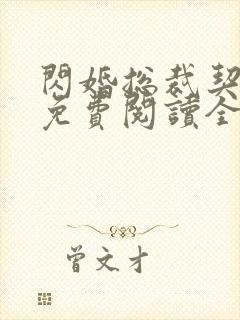 閃婚总裁契
免費閱讀全
曾文才